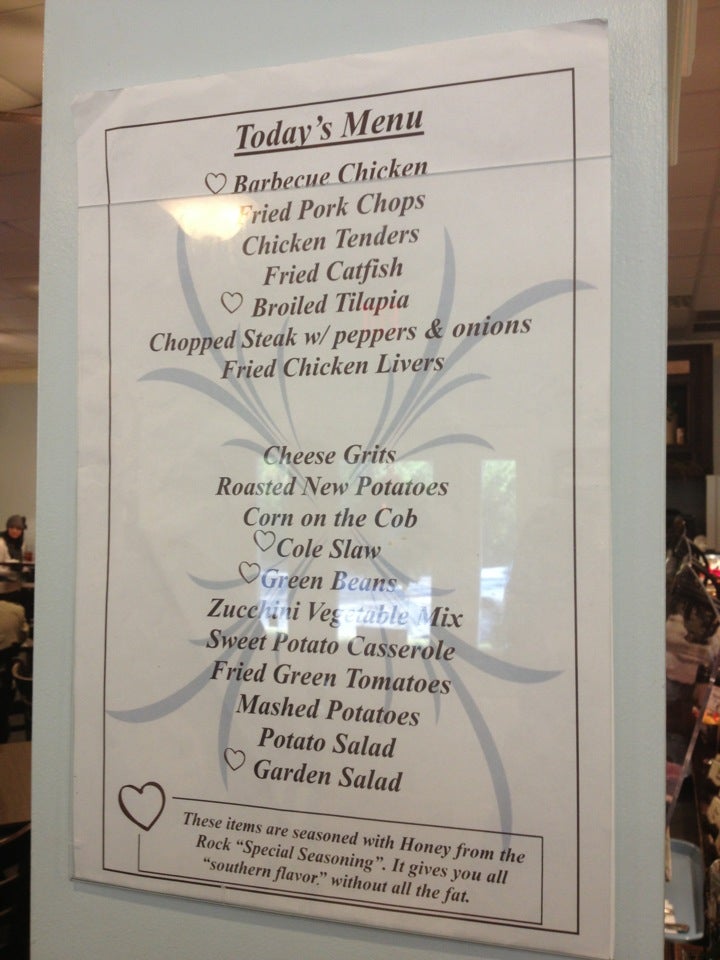 Today's Menu
Barbecue Chicken
Fried Pork Chops
Chicken Tenders
Fried Catfish
Broiled Tilapia
Chopped Steak w/ peppers & onions
Fried Chicken Livers
Cheese Grits
Roasted New Potatoes
Corn on the Cob
Cole Slaw
Green Beans
Zucchini Vegetable Mix
Sweet Potato Casserole
Fried Green Tomatoes
Mashed Potatoes
Potato Salad
Garden Salad
These items are seasoned with Honey from the
Rock "Special Seasoning". It gives you all
"southern flavor." without all the fat.